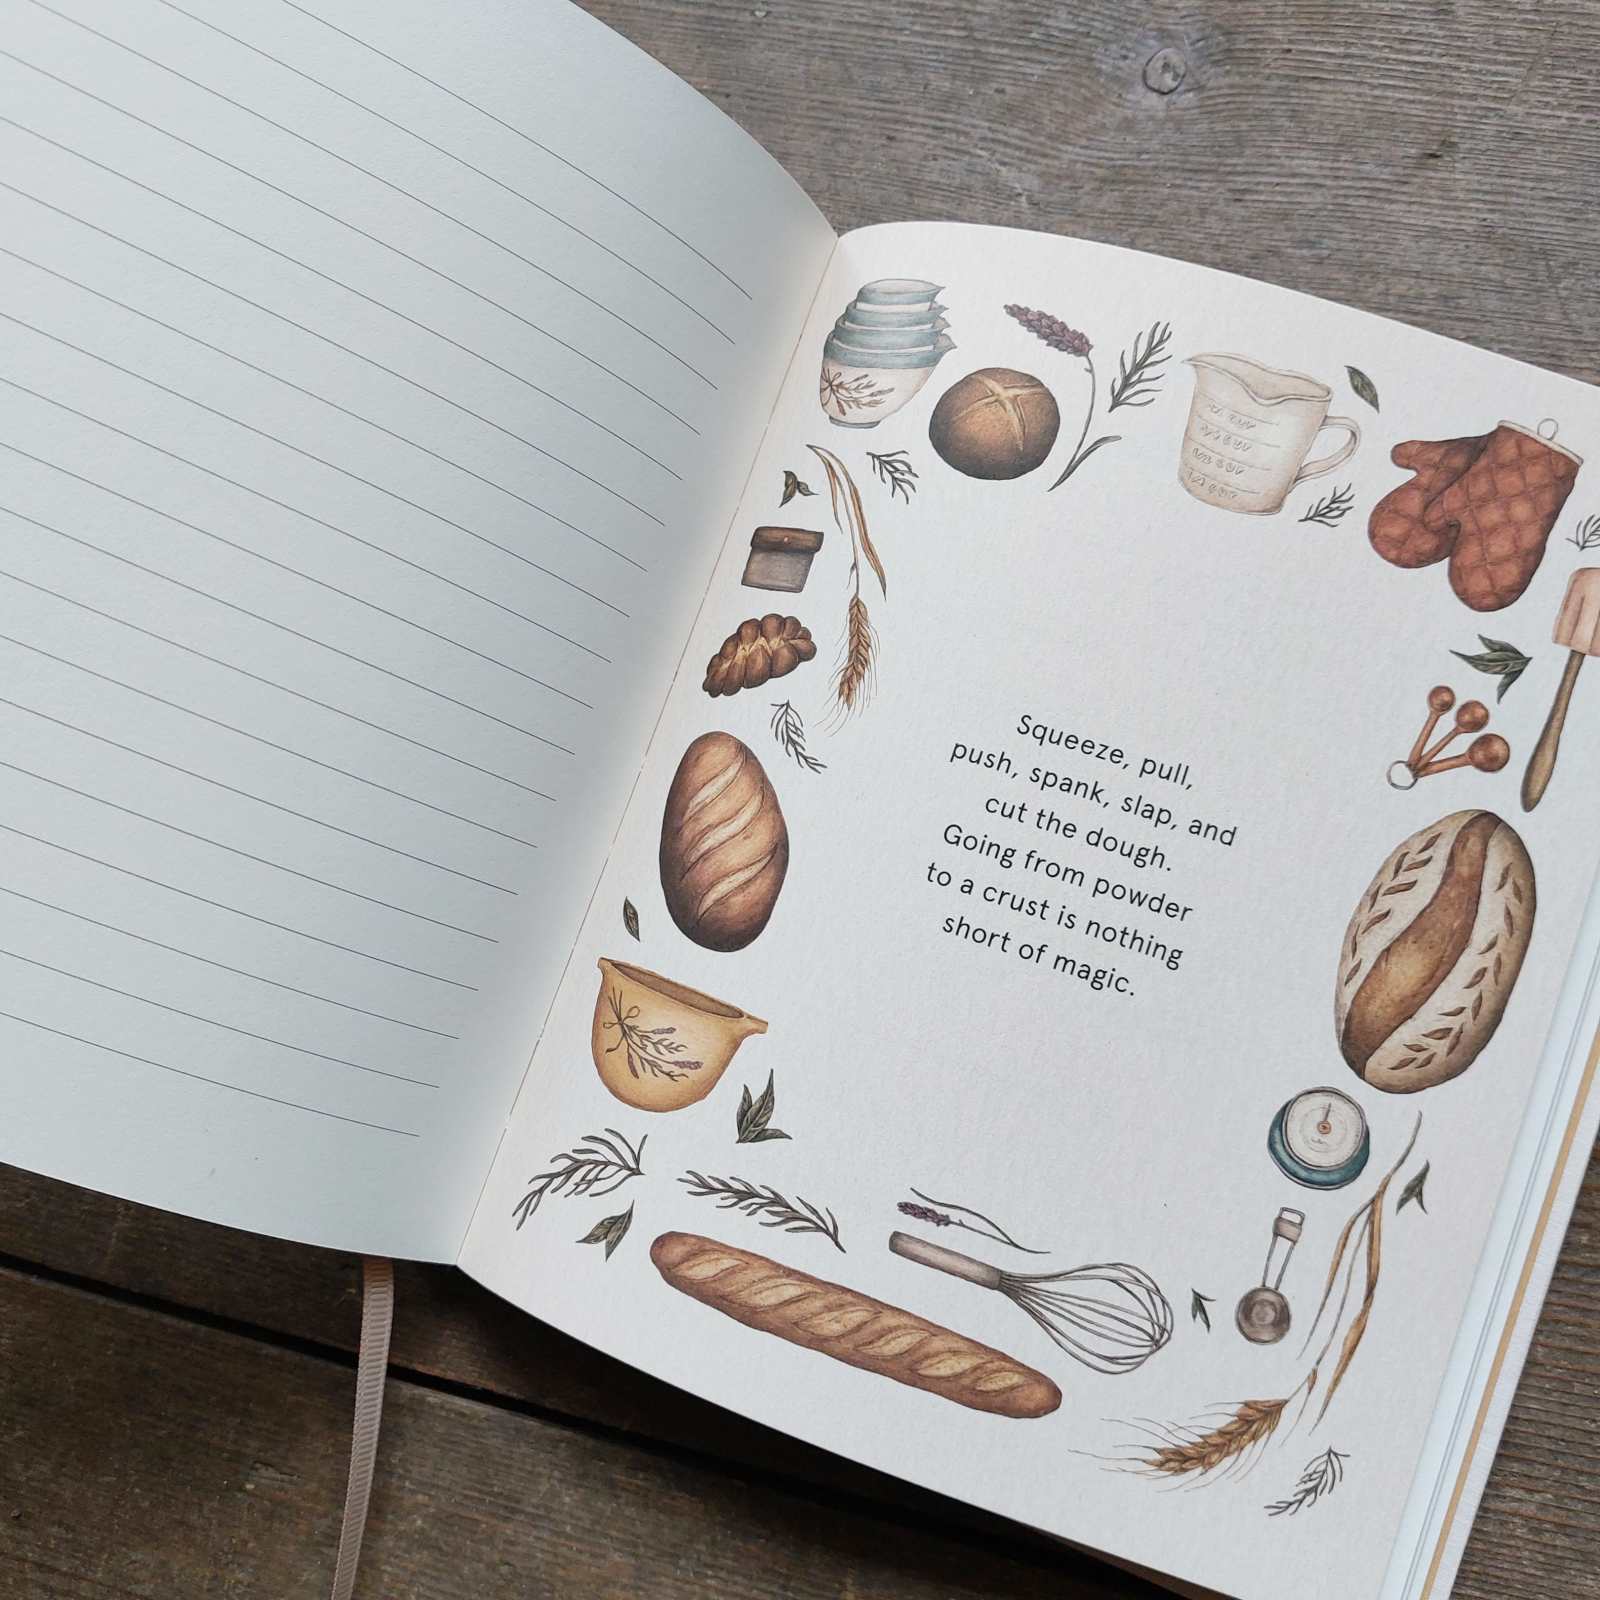 Squeeze, pull,
push, spank, slap, and
cut the dough.
Going from powder
to a crust is nothing
short of magic.